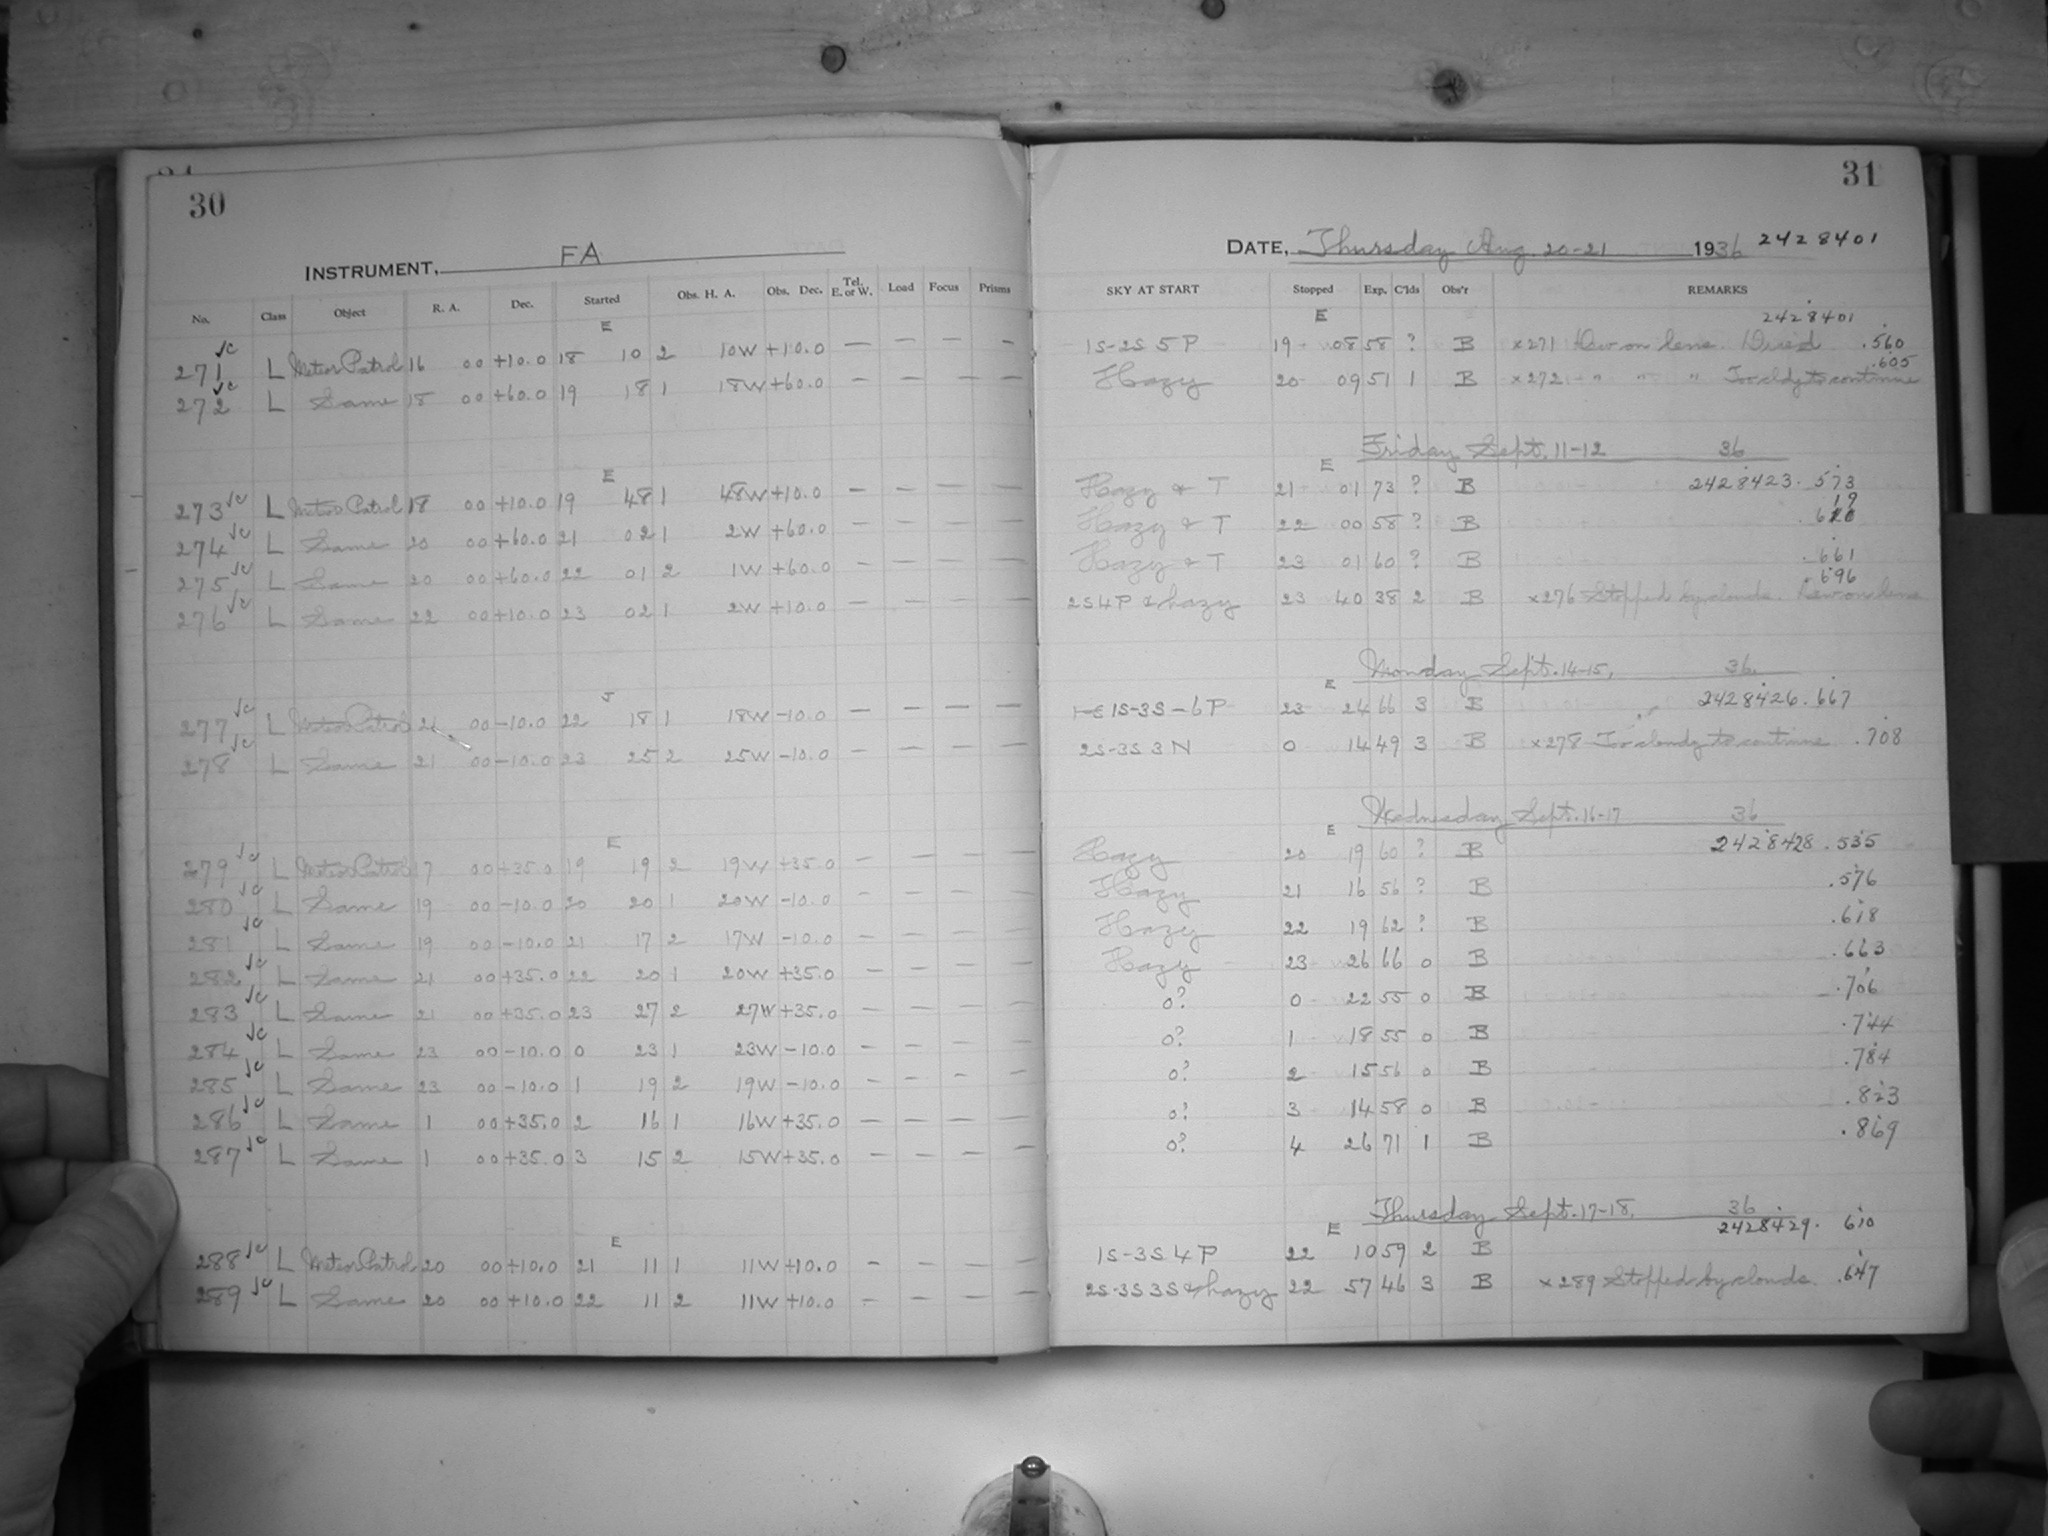 30
INSTRUMENT, FA
No. Class Object R. A. Dec. Started Obs. H. A. Obs. Dec. Tel. E. or W. Load Focus Prisms
E
271 L Meteor Patrol 16 00 +10.0 18 10 2 10W +10.0 — — — —
272 L Same 18 00 +60.0 19 18 1 18W +60.0 — — — —
E
273 L Meteor Patrol 18 00 +10.0 19 48 1 48W +10.0 — — — —
274 L Same 20 00 +60.0 21 02 1 2W +60.0 — — — —
275 L Same 20 00 +60.0 22 01 2 1W +60.0 — — — —
276 L Same 22 00 +10.0 23 02 1 2W +10.0 — — — —
277 L Meteor Patrol 21 00 -10.0 22 18 1 18W -10.0 — — — —
278 L Same 21 00 -10.0 23 25 2 25W -10.0 — — — —
E
279 L Meteor Patrol 17 00 +35.0 19 19 2 19W +35.0 — — — —
280 L Same 19 00 -10.0 20 20 1 20W -10.0 — — — —
281 L Same 19 00 -10.0 21 17 2 17W -10.0 — — — —
282 L Same 21 00 +35.0 22 20 1 20W +35.0 — — — —
283 L Same 21 00 +35.0 23 27 2 27W +35.0 — — — —
284 L Same 23 00 -10.0 0 23 1 23W -10.0 — — — —
285 L Same 23 00 -10.0 1 19 2 19W -10.0 — — — —
286 L Same 1 00 +35.0 2 16 1 16W +35.0 — — — —
287 L Same 1 00 +35.0 3 15 2 15W +35.0 — — — —
E
288 L Meteor Patrol 20 00 +10.0 21 11 1 11W +10.0 — — — —
289 L Same 20 00 +10.0 22 11 2 11W +10.0 — — — —
31
DATE, Thursday Aug. 20-21 1936 2428401
SKY AT START Stopped Exp. C'lds Obs'r REMARKS
E 2428401
1S-2S 5P 19 08 58 ? B x271 Dew on lens. Dried .560
Hazy 20 09 51 1 B x272 " " " Too cldy to continue .605
Friday Sept. 11-12 36
E
Hazy & T 21 01 73 ? B 2428423.573
Hazy & T 22 00 58 ? B
Hazy & T 23 01 60 ? B .661
2S 4P & hazy 23 40 38 2 B x276 Stopped by clouds. Dew on lens .696
Monday Sept. 14-15, 36
E
1S-3S-6P 23 24 66 3 B 2428426.667
2S-3S 3N 0 14 49 3 B x278 Too cloudy to continue .708
Wednesday Sept. 16-17 36
E
Hazy 20 19 60 ? B 2428428.535
Hazy 21 16 56 ? B .576
Hazy 22 19 62 ? B .618
Hazy 23 26 66 0 B .663
0? 0 22 55 0 B .706
0? 1 18 55 0 B .744
0? 2 15 56 0 B .784
0? 3 14 58 0 B .823
0? 4 26 71 1 B .869
Thursday Sept. 17-18, 36
E 2428429.610
1S-3S 4P 22 10 59 2 B
2S-3S 3S & hazy 22 57 46 3 B x289 Stopped by clouds. .647